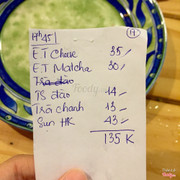 ET Chase 35
ET Matcha 30
Trà đào
TS đào 14
Trà chanh 13
Sun HK 43
135 K